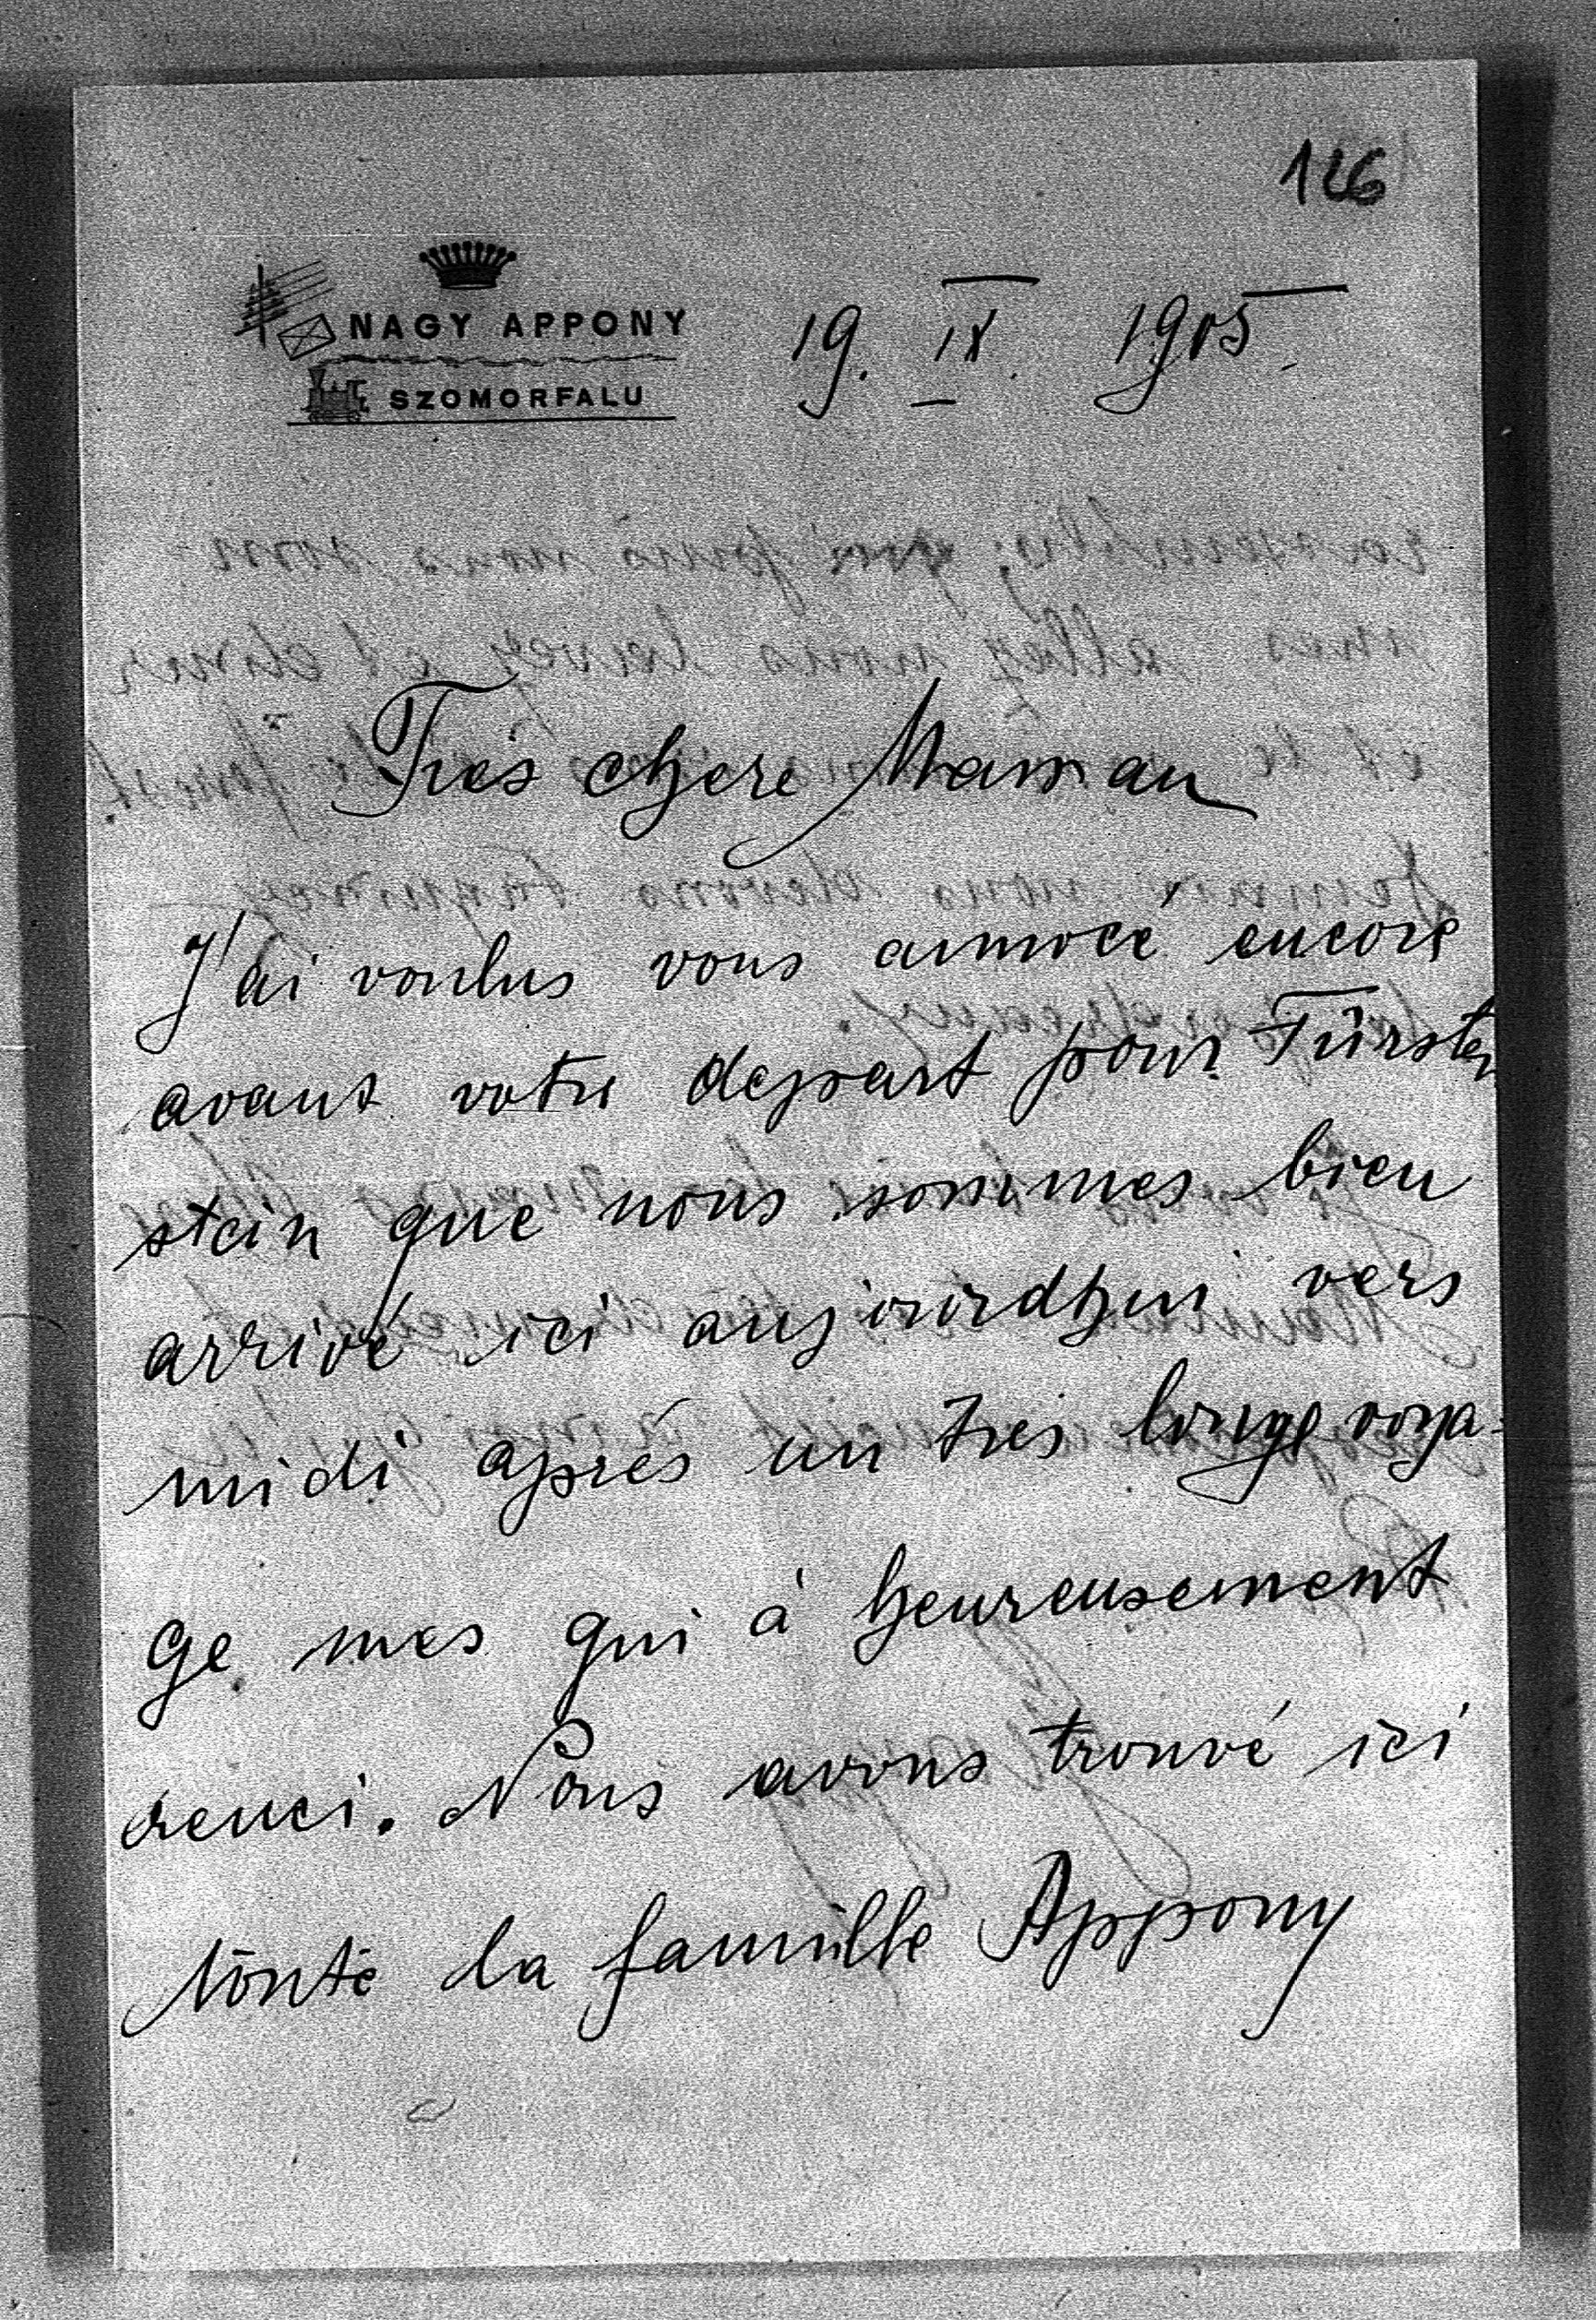 126
NAGY APPONY
SZOMORFALU
19. IX. 1905.
Trés chere Maman
J'ai voulus vous annocé encore
avant votre depart pour Fürsten
stein que nous sommes bien
arrivé ici aujourdhui vers
midi aprés un tres longe voya-
ge mes qui à heureusement
reuci. Nous avons trouvé ici
toute la famille Appony